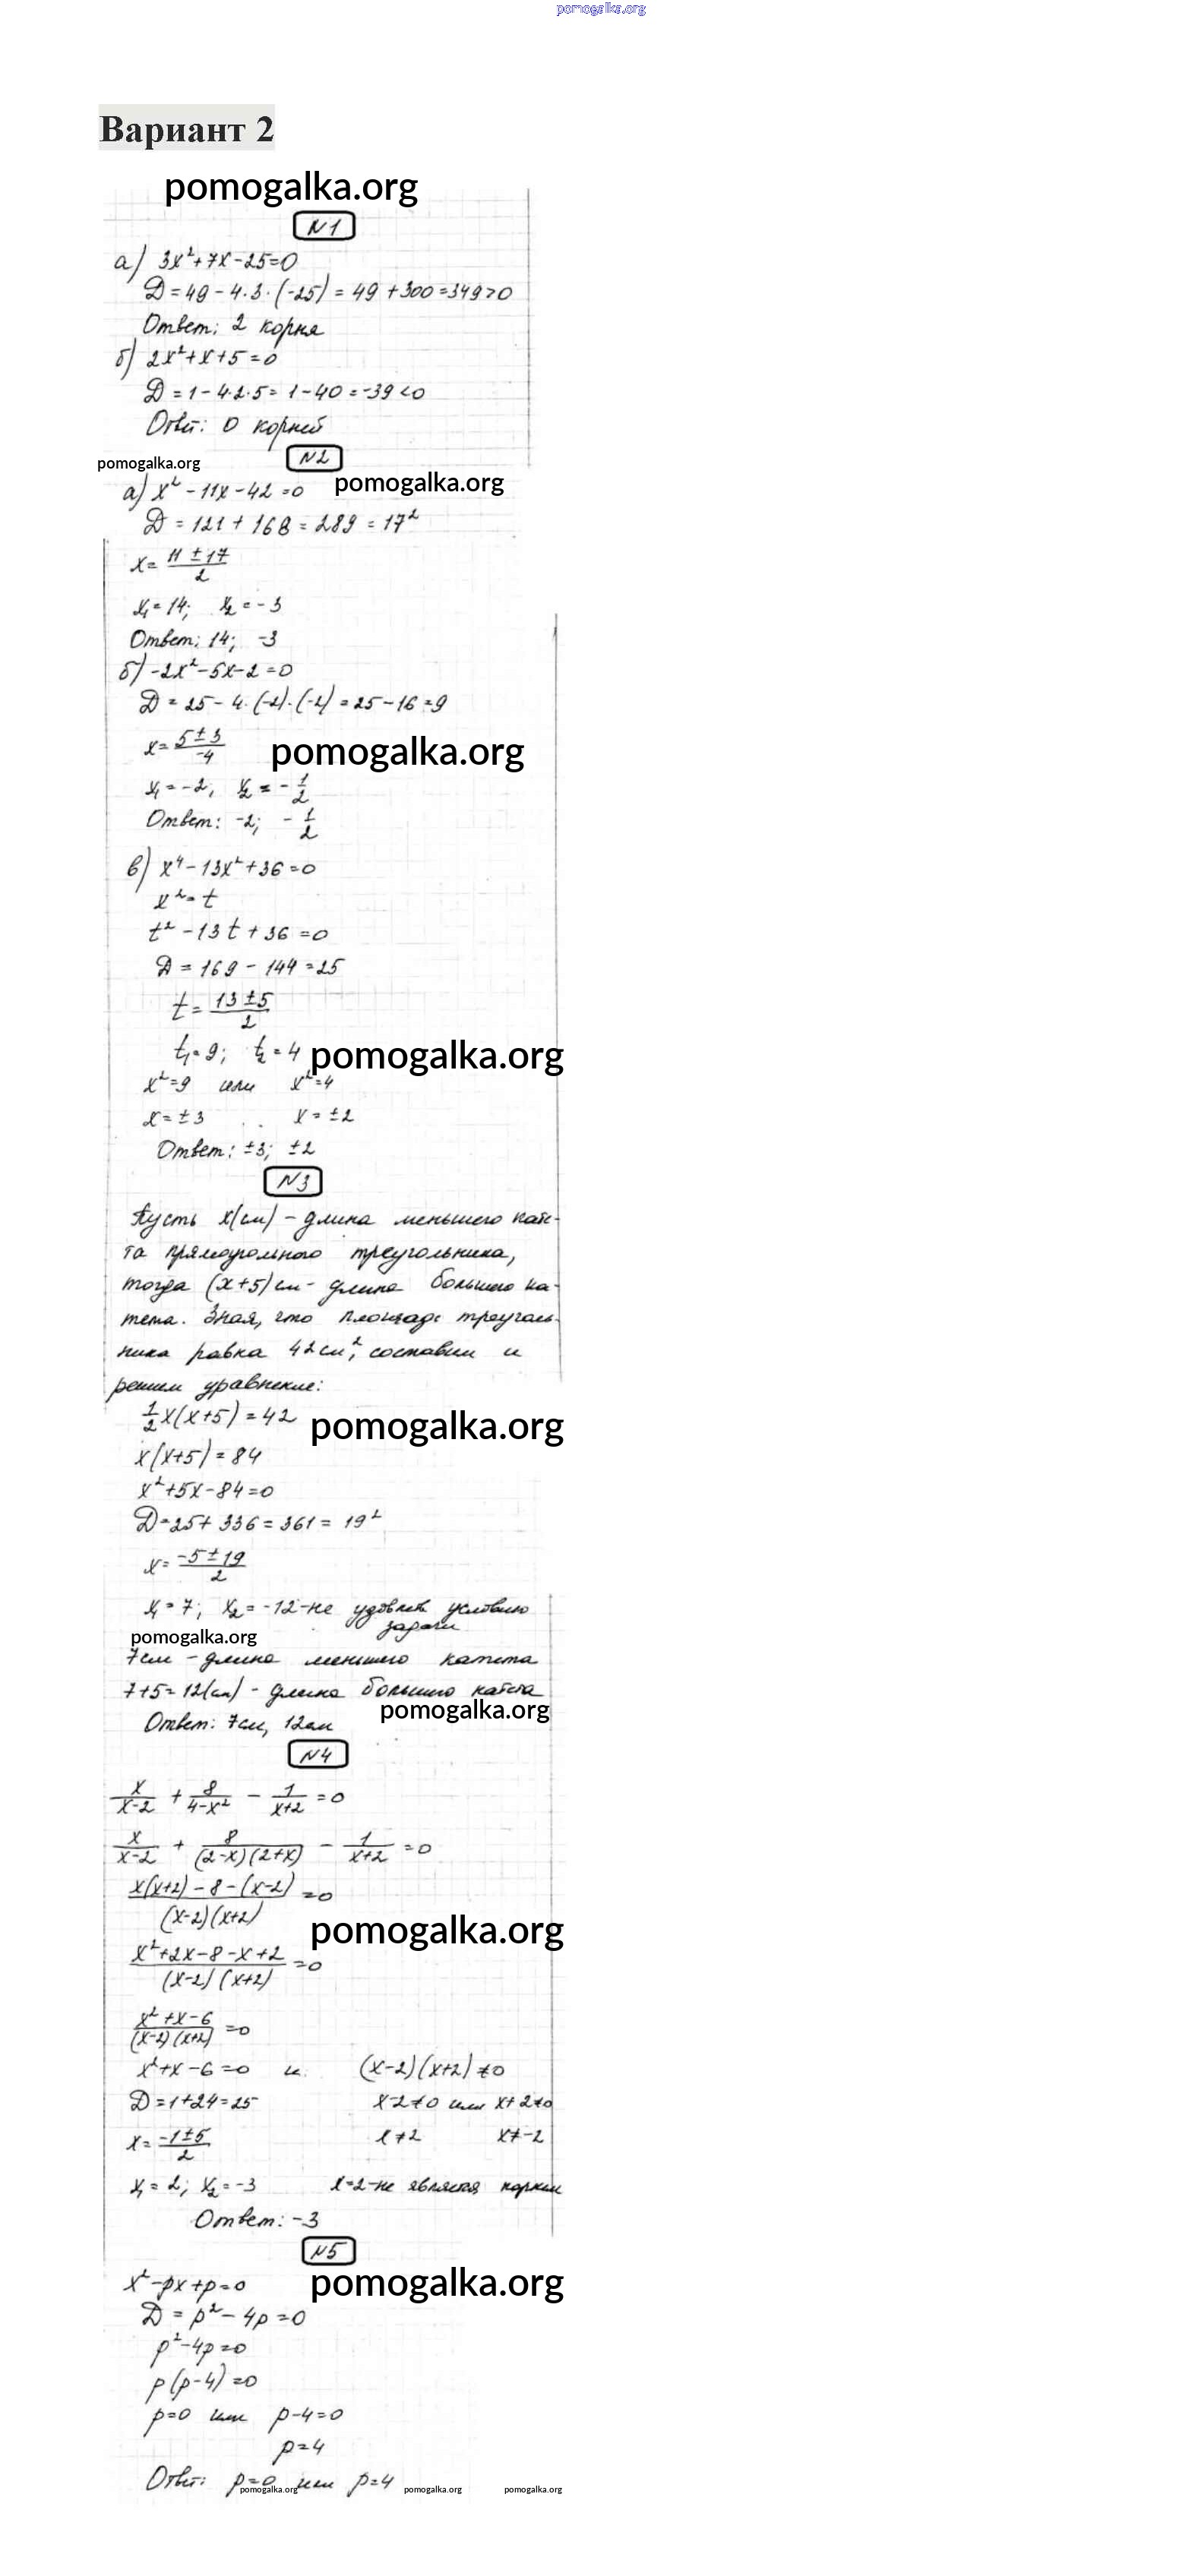 pomogalka.org
Вариант 2
pomogalka.org
N1
а) 3x²+7x-25=0
D = 49 - 4·3·(-25) = 49 + 300 = 349 > 0
Ответ: 2 корня
б) 2x²+x+5=0
D = 1 - 4·2·5 = 1 - 40 = -39 < 0
Ответ: 0 корней
pomogalka.org
N2
pomogalka.org
а) x² - 11x - 42 = 0
D = 121 + 168 = 289 = 17²
x = (11 ± 17)/2
x₁ = 14; x₂ = -3
Ответ: 14; -3
б) -2x² - 5x - 2 = 0
D = 25 - 4·(-2)·(-2) = 25 - 16 = 9
x = (5 ± 3)/-4
pomogalka.org
x₁ = -2, x₂ = -1/2
Ответ: -2; -1/2
в) x⁴ - 13x² + 36 = 0
x² = t
t² - 13t + 36 = 0
D = 169 - 144 = 25
t = (13 ± 5)/2
t₁ = 9; t₂ = 4
pomogalka.org
x² = 9 или x² = 4
x = ±3 x = ±2
Ответ: ±3; ±2
N3
Пусть x(см) - длина меньшего кате-
та прямоугольного треугольника,
тогда (x+5) см - длина большего ка-
тета. Зная, что площадь треуголь-
ника равна 42 см², составим и
решим уравнение:
1/2 x(x+5) = 42
pomogalka.org
x(x+5) = 84
x²+5x-84=0
D = 25 + 336 = 361 = 19²
x = (-5 ± 19)/2
x₁ = 7; x₂ = -12 - не удовлет. условию
задачи
pomogalka.org
7см - длина меньшего катета
7+5=12(см) - длина большего катета
pomogalka.org
Ответ: 7см, 12см
N4
x/(x-2) + 8/(4-x²) - 1/(x+2) = 0
x/(x-2) + 8/((2-x)(2+x)) - 1/(x+2) = 0
(x(x+2) - 8 - (x-2))/((x-2)(x+2)) = 0
pomogalka.org
(x²+2x-8-x+2)/((x-2)(x+2)) = 0
(x²+x-6)/((x-2)(x+2)) = 0
x²+x-6=0 и (x-2)(x+2)≠0
D = 1+24 = 25 x-2≠0 или x+2≠0
x = (-1±5)/2 x≠2 x≠-2
x₁ = 2; x₂ = -3 x=2 - не является корнем
Ответ: -3
N5
pomogalka.org
x² - px + p = 0
D = p² - 4p = 0
p² - 4p = 0
p(p-4) = 0
p=0 или p-4=0
p=4
Ответ: p=0 или p=4
pomogalka.org pomogalka.org pomogalka.org